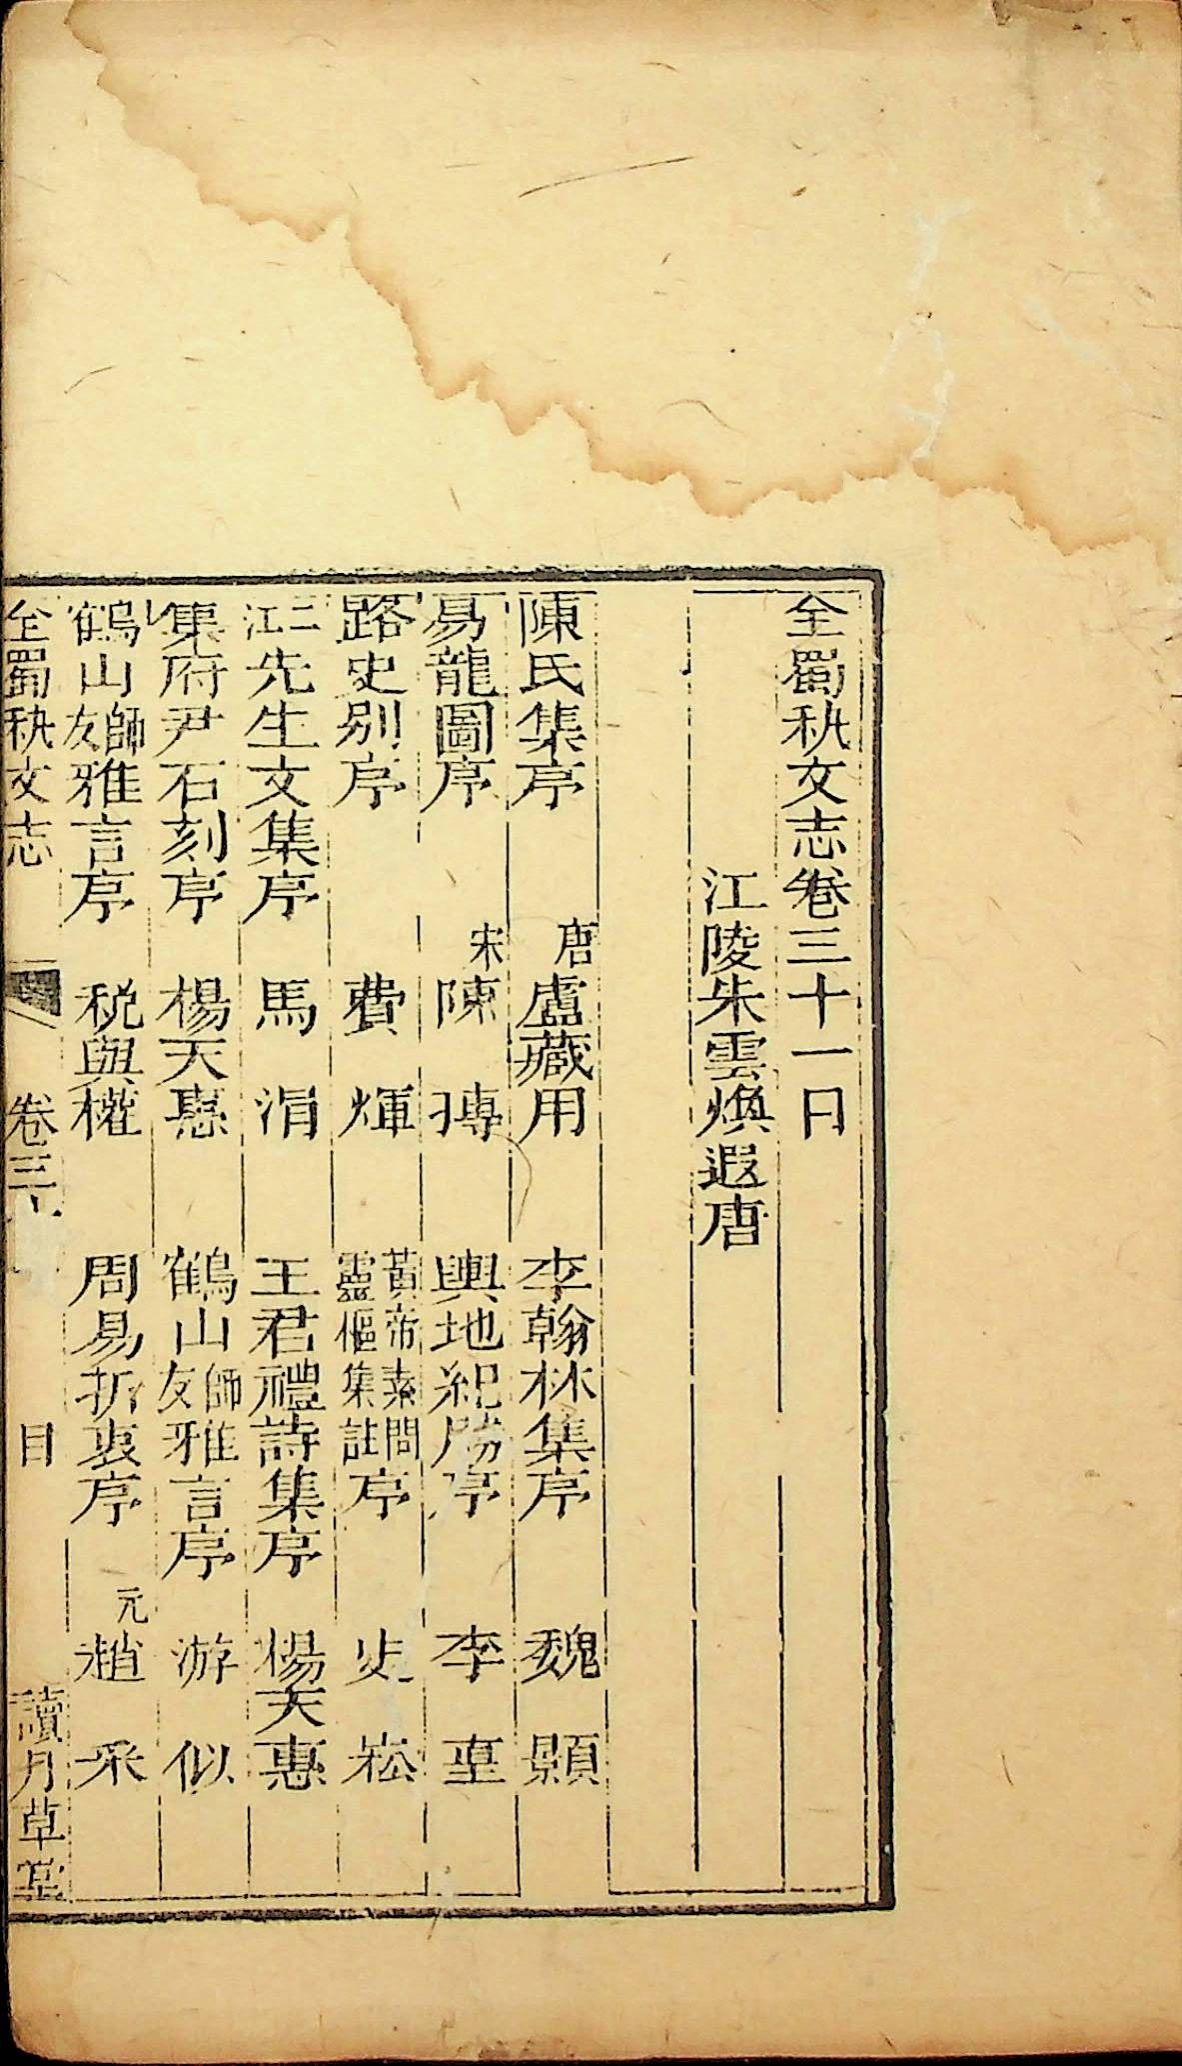 全蜀秇文志卷三十一目
江陵朱雲煥遐唐
陳氏集序 唐盧藏用 李翰林集序 魏顥
易龍圖序 宋陳摶 輿地紀勝序 李𡌴
路史别序 費煇 黃帝素問靈樞集註序 史崧
二江先生文集序 馬涓 王君禮詩集序 楊天惠
集府尹石刻序 楊天惠 鶴山師友雅言序 游似
鶴山師友雅言序 稅與權 周易折衷序 元趙采
全蜀秇文志 卷三十 目 讀月草堂